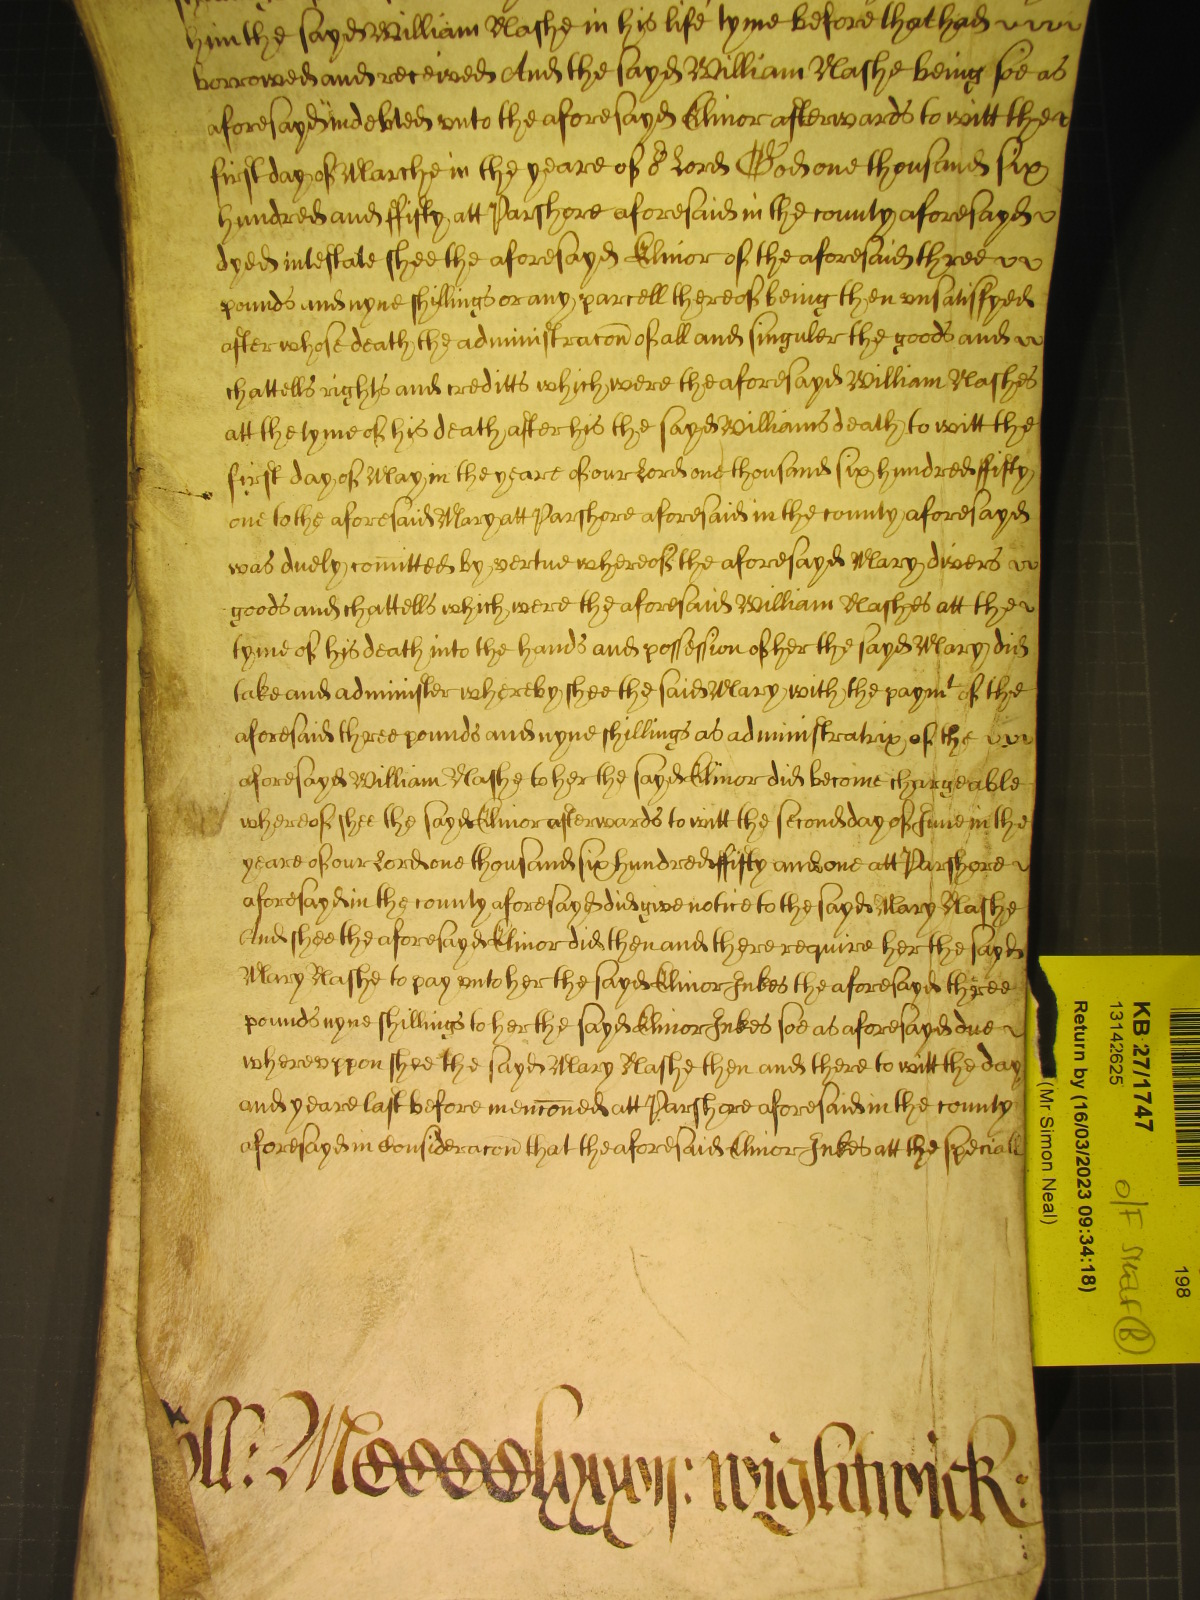 him the sayd William Nashe in his life tyme before that had
borrowed and received And the sayd William Nashe being soe as
aforesayd indebted unto the aforesayd Elinor afterwards to witt the
first day of Marche in the yeare of or Lord God one thousand six
hundred and ffifty att Parshore aforesaid in the county aforesayd
dyed intestate shee the aforesayd Elinor of the aforesaid three
pounds and nyne shillings or any parcell thereof being then unsatisfyed
after whose death the administracon of all and singuler the goods and
chattells rights and creditts which were the aforesayd William Nashes
att the tyme of his death after his the sayd Williams death to witt the
first day of May in the yeare of our Lord one thousand six hundred ffifty
one to the aforesaid Mary att Parshore aforesaid in the county aforesayd
was duely comitted by vertue whereof the aforesayd Mary divers
goods and chattells which were the aforesaid William Nashes att the
tyme of his death into the hands and possession of her the sayd Mary did
take and administer whereby shee the said Mary with the paymt of the
aforesaid three pounds and nyne shillings as administratrix of the
aforesayd William Nashe to her the sayd Elinor did become chargeable
whereof shee the sayd Elinor afterwards to witt the second day of June in the
yeare of our Lord one thousand six hundred ffifty and one att Parshore
aforesayd in the county aforesayd did give notice to the sayd Mary Nashe
And shee the aforesayd Elinor did then and there require her the sayd
Mary Nashe to pay unto her the sayd Elinor Inkes the aforesayd three
pounds nyne shillings to her the sayd Elinor Inkes soe as aforesayd due
whereuppon shee the sayd Mary Nashe then and there to witt the day
and yeare last before menconed att Parshore aforesaid in the county
aforesayd in consideracon that the aforesaid Elinor Inkes att the speciall
Roll: MCCCClxxxij: Wightwick:
KB 27/1747
13142625
Return by (16/03/2023 09:34:18)
(Mr Simon Neal)
198
O/F